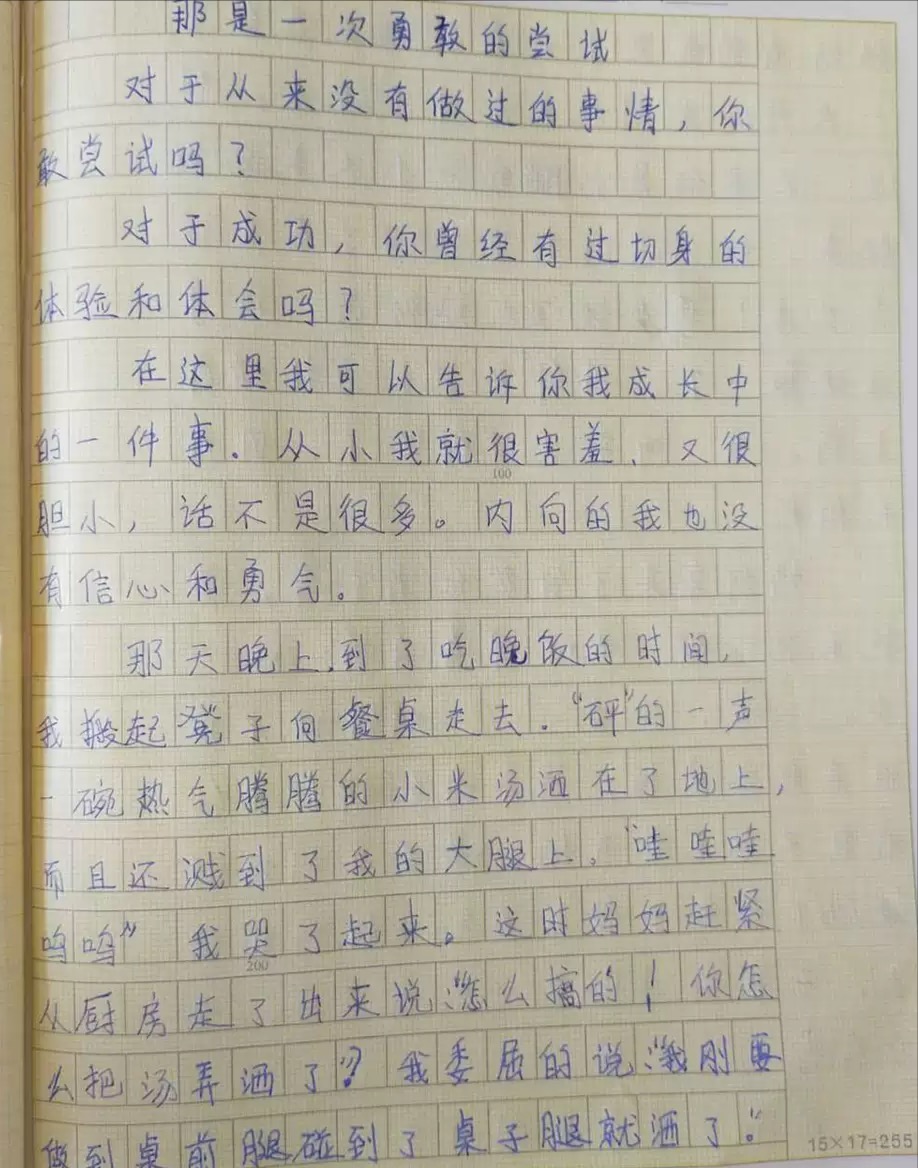 那是一次勇敢的尝试
对于从来没有做过的事情，你
敢尝试吗？
对于成功，你曾经有过切身的
体验和体会吗？
在这里我可以告诉你我成长中
的一件事．从小我就很害羞、又很
100
胆小，话不是很多。内向的我也没
有信心和勇气。
那天晚上,到了吃晚饭的时间，
我搬起凳子向餐桌走去．“砰”的一声
一碗热气腾腾的小米汤洒在了地上，
而且还溅到了我的大腿上．“哇哇哇
呜呜”我哭了起来。这时妈妈赶紧
200
从厨房走了出来说:“怎么搞的！你怎
么把汤弄洒了”？我委屈的说:“我刚要
做到桌前腿碰到了桌子腿就洒了。”
15×17=255